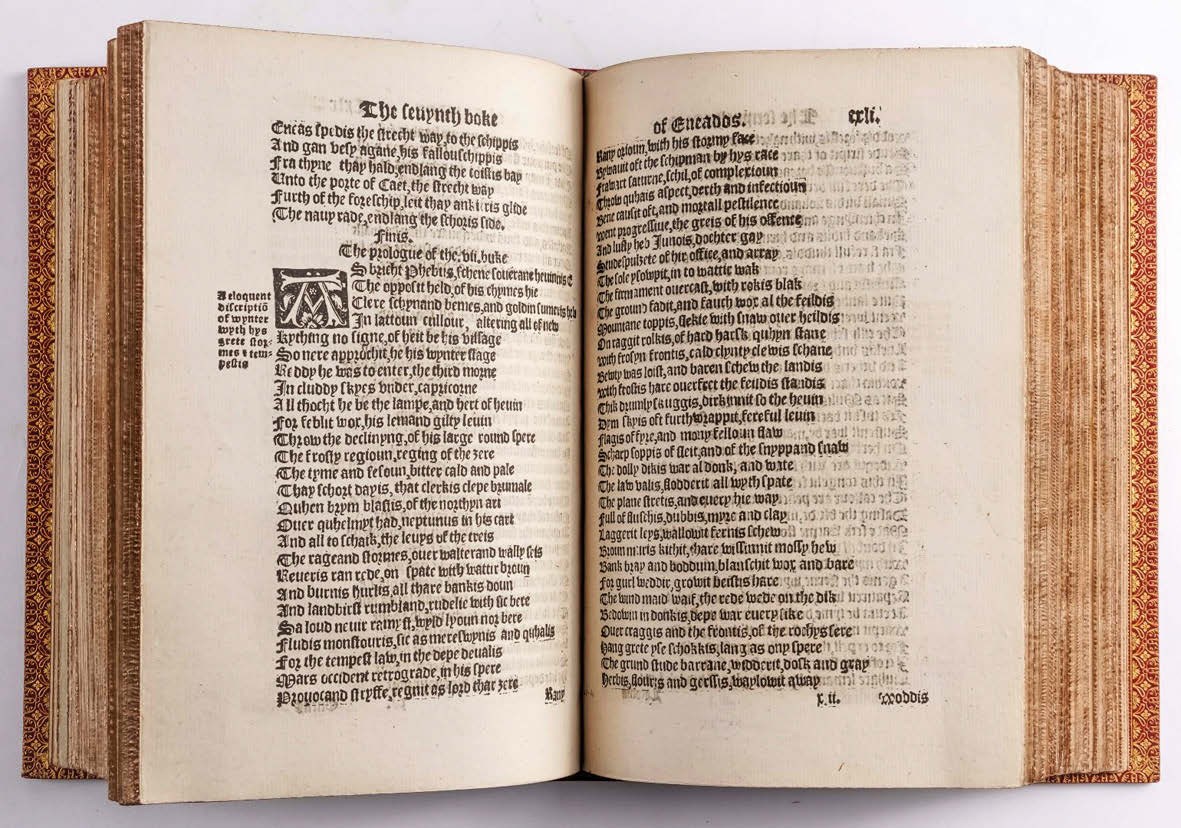 The seuynth boke
Eneas spedis the strecht way, to the schippis
And gan vesy agane, his fallouschippis
Fra thyne thay hald, endlang the coistis bay
Unto the porte of Caet, the strecht way
Furth of the foreschip, leit thay ankiris glide
The nauy rade, endlang the schoris side.
Finis.
The prologue of the. vii. buke
A eloquent
discriptiō
of wynter
wyth hys
grete stor-
mes & tem-
pestis
AS bricht Phebus, schene souerane heuinnis E
The opposit held, of his chymes hie
Clere schynand bemes, and goldin sumeris hew
In lattoun cullour, altering all of new
Kything no signe, of heit be his visage
So nere approchit, he his wynter stage
Reddy he was to enter, the third morne
In cluddy skyes vnder, capricorne
All thocht he be the lampe, and hert of heuin
For feblit wox, his lemand gilty leuin
Throw the declinyng, of his large round spere
The frosty regioun, reging of the zere
The tyme and sesoun, bitter cald and pale
Thay schort dayis, that clerkis clepe brumale
Quhen brym blastis, of the northyn art
Ouer quhelmyt had, neptunus in his cart
And all to schaik, the leuys of the treis
The rageand stormes, ouer walterand wally seis
Reueris ran rede, on spate with wattir broun
And burnis hurlis, all thare bankis doun
And landbirst rumbland, rudelie with sic bere
Sa loud neuir ramyst, wyld lyoun nor bere
Fludis monstouris, sic as mereswynis and quhalis
For the tempest law, in the depe deualis
Mars occident retrograde, in his spere
Prouocand stryffe, regnit as lord that zere
Rany
of Eneados. cxli.
Rany orioun, with his stormy face
Bywauit oft the schipman by hys race
Frawart saturne, schil, of complexioun
Throw quhais aspect, derth and infectioun
Bene causit oft, and mortall pestilence
Went progressiue, the greis of his offence
And lusty heb Junois, dochter gay
Stude spulzete of hir office, and array
The sole ysowpit, in to wattir wak
The firmament ouercast, with rokis blak
The ground fadit, and fauch wox al the feildis
Mountane toppis, slekie with snaw ouer heildis
On raggit rolkis, of hard harsk quhyn stane
With frosyn frontis, cald clynty clewis schane
Bewty was loist, and baren schew the landis
With frostis hare ouerfret the feildis standis
Thik drumly skuggis, dirkinnit so the heuin
Dym skyis oft furth wrappit, fereful leuin
Flagis of fyre, and mony felloun flaw
Scharp soppis of sleit, and of the snyppand snaw
The dolly dikis war al donk, and wate
The law valis, flodderit all wyth spate
The plane stretis, and euery hie way
Full of fluschis, dubbis, myre and clay
Laggerit leys, wallowit fernis schew
Broun muris kithit, thare wissinnit mossy hew
Bank bray and boddum, blanschit wox and bare
For gurl weddir, growit beistis hare
The wind maid waif, the rede wede on the dik
Bedowin in donkis, depe war euery sike
Ouer craggis and the frontis, of the rochys sere
Hang grete yse schokkis, lang as ony spere
The grund stude barrane, widderit, dosk and gray
Herbis, flouris and gerssis, waylowit away
x.ii. Woddis